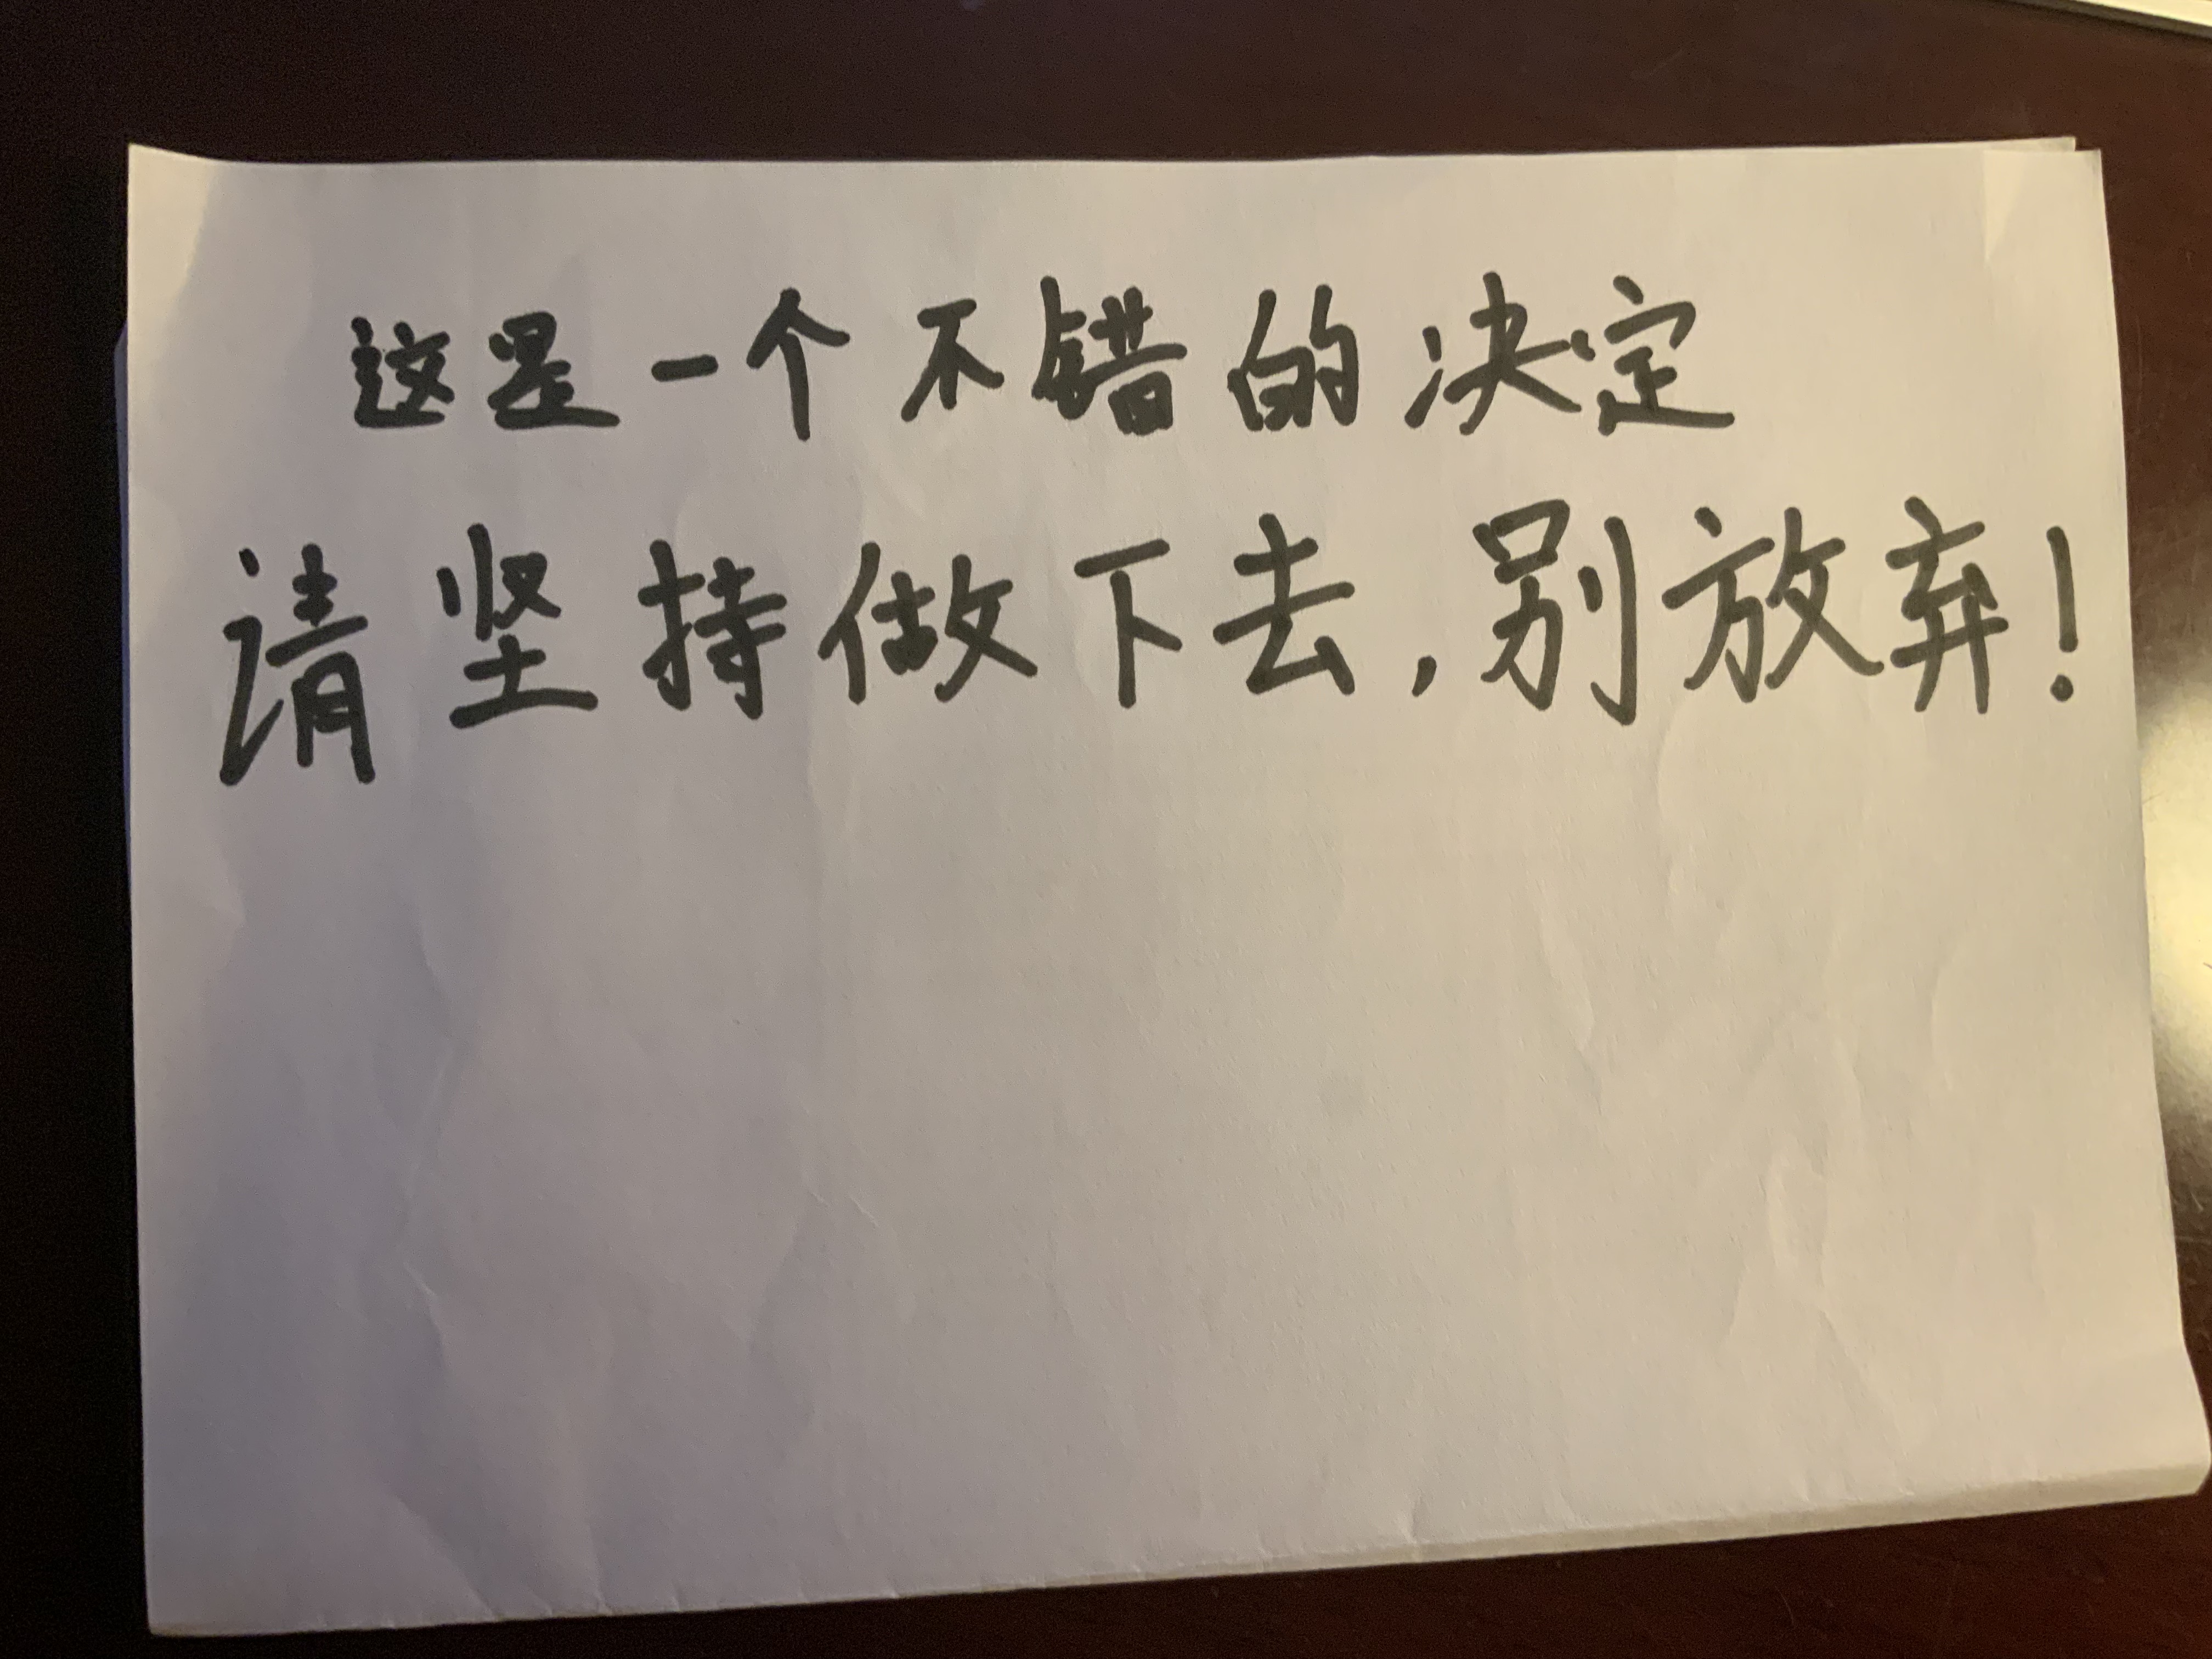 这是一个不错的决定
请坚持做下去,别放弃!